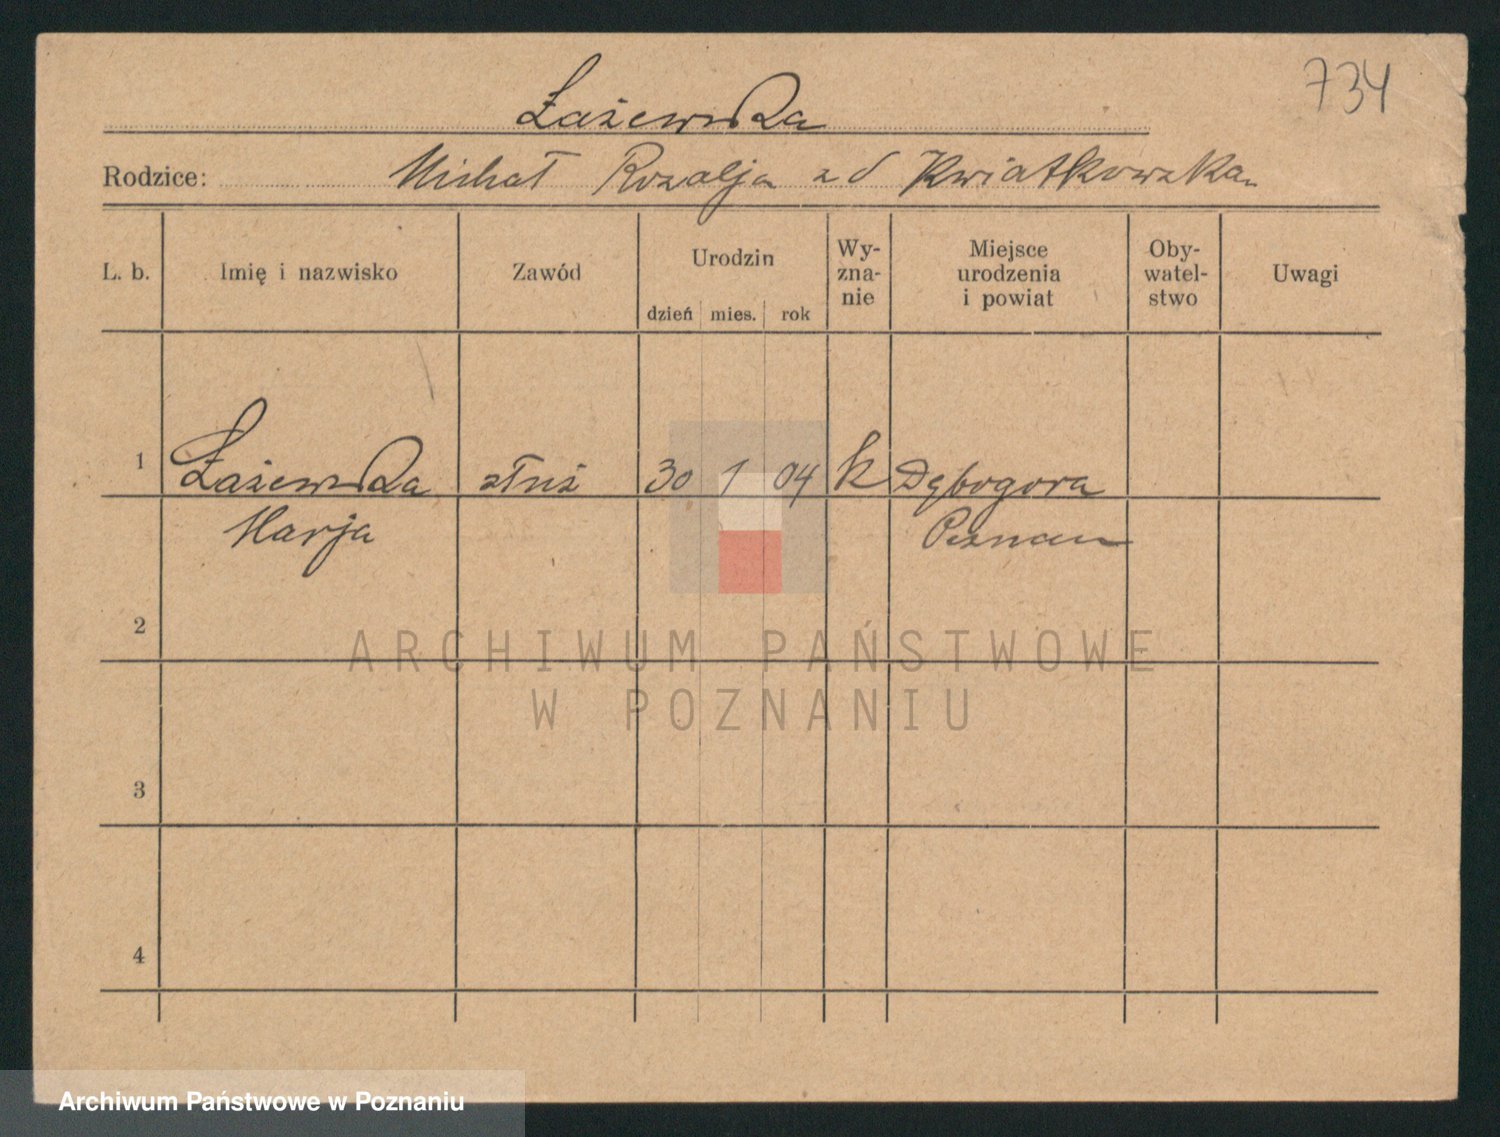 734
Łażewska
Rodzice: Michał Rozalja zd Kwiatkowska
L. b. Imię i nazwisko Zawód Urodzin dzień mies. rok Wy-zna-nie Miejsce urodzenia i powiat Oby-watel-stwo Uwagi
1 Łażewska służ 30 1 04 k Dębogora
Marja Poznan
2
ARCHIWUM PAŃSTWOWE
W POZNANIU
3
4
Archiwum Państwowe w Poznaniu